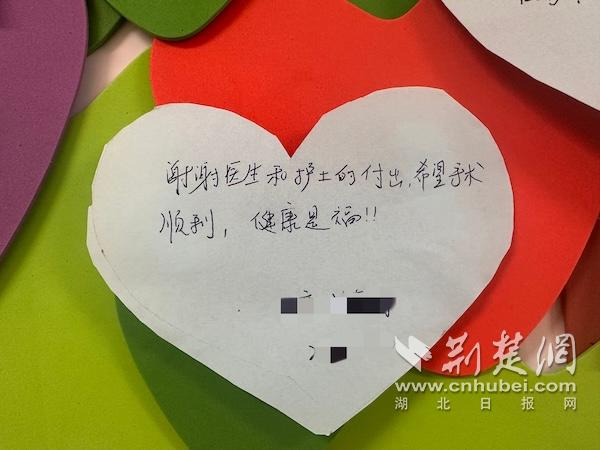 谢谢医生和护士的付出,希望手术
顺利，健康是福!!
荆楚网
www.cnhubei.com
湖北日报网